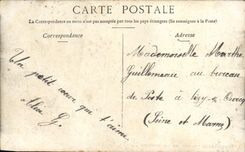 CARTE POSTALE
La Correspondance au recto n'est pas acceptée par tous les pays étrangers (Se renseigner à la Poste)
Correspondance
Adresse
Un petit cœur qui t'aime
G.
Mademoiselle Marthe
Guillemenie au bureau
de Poste à Lizy s/ Ourcq
(Seine et Marne)